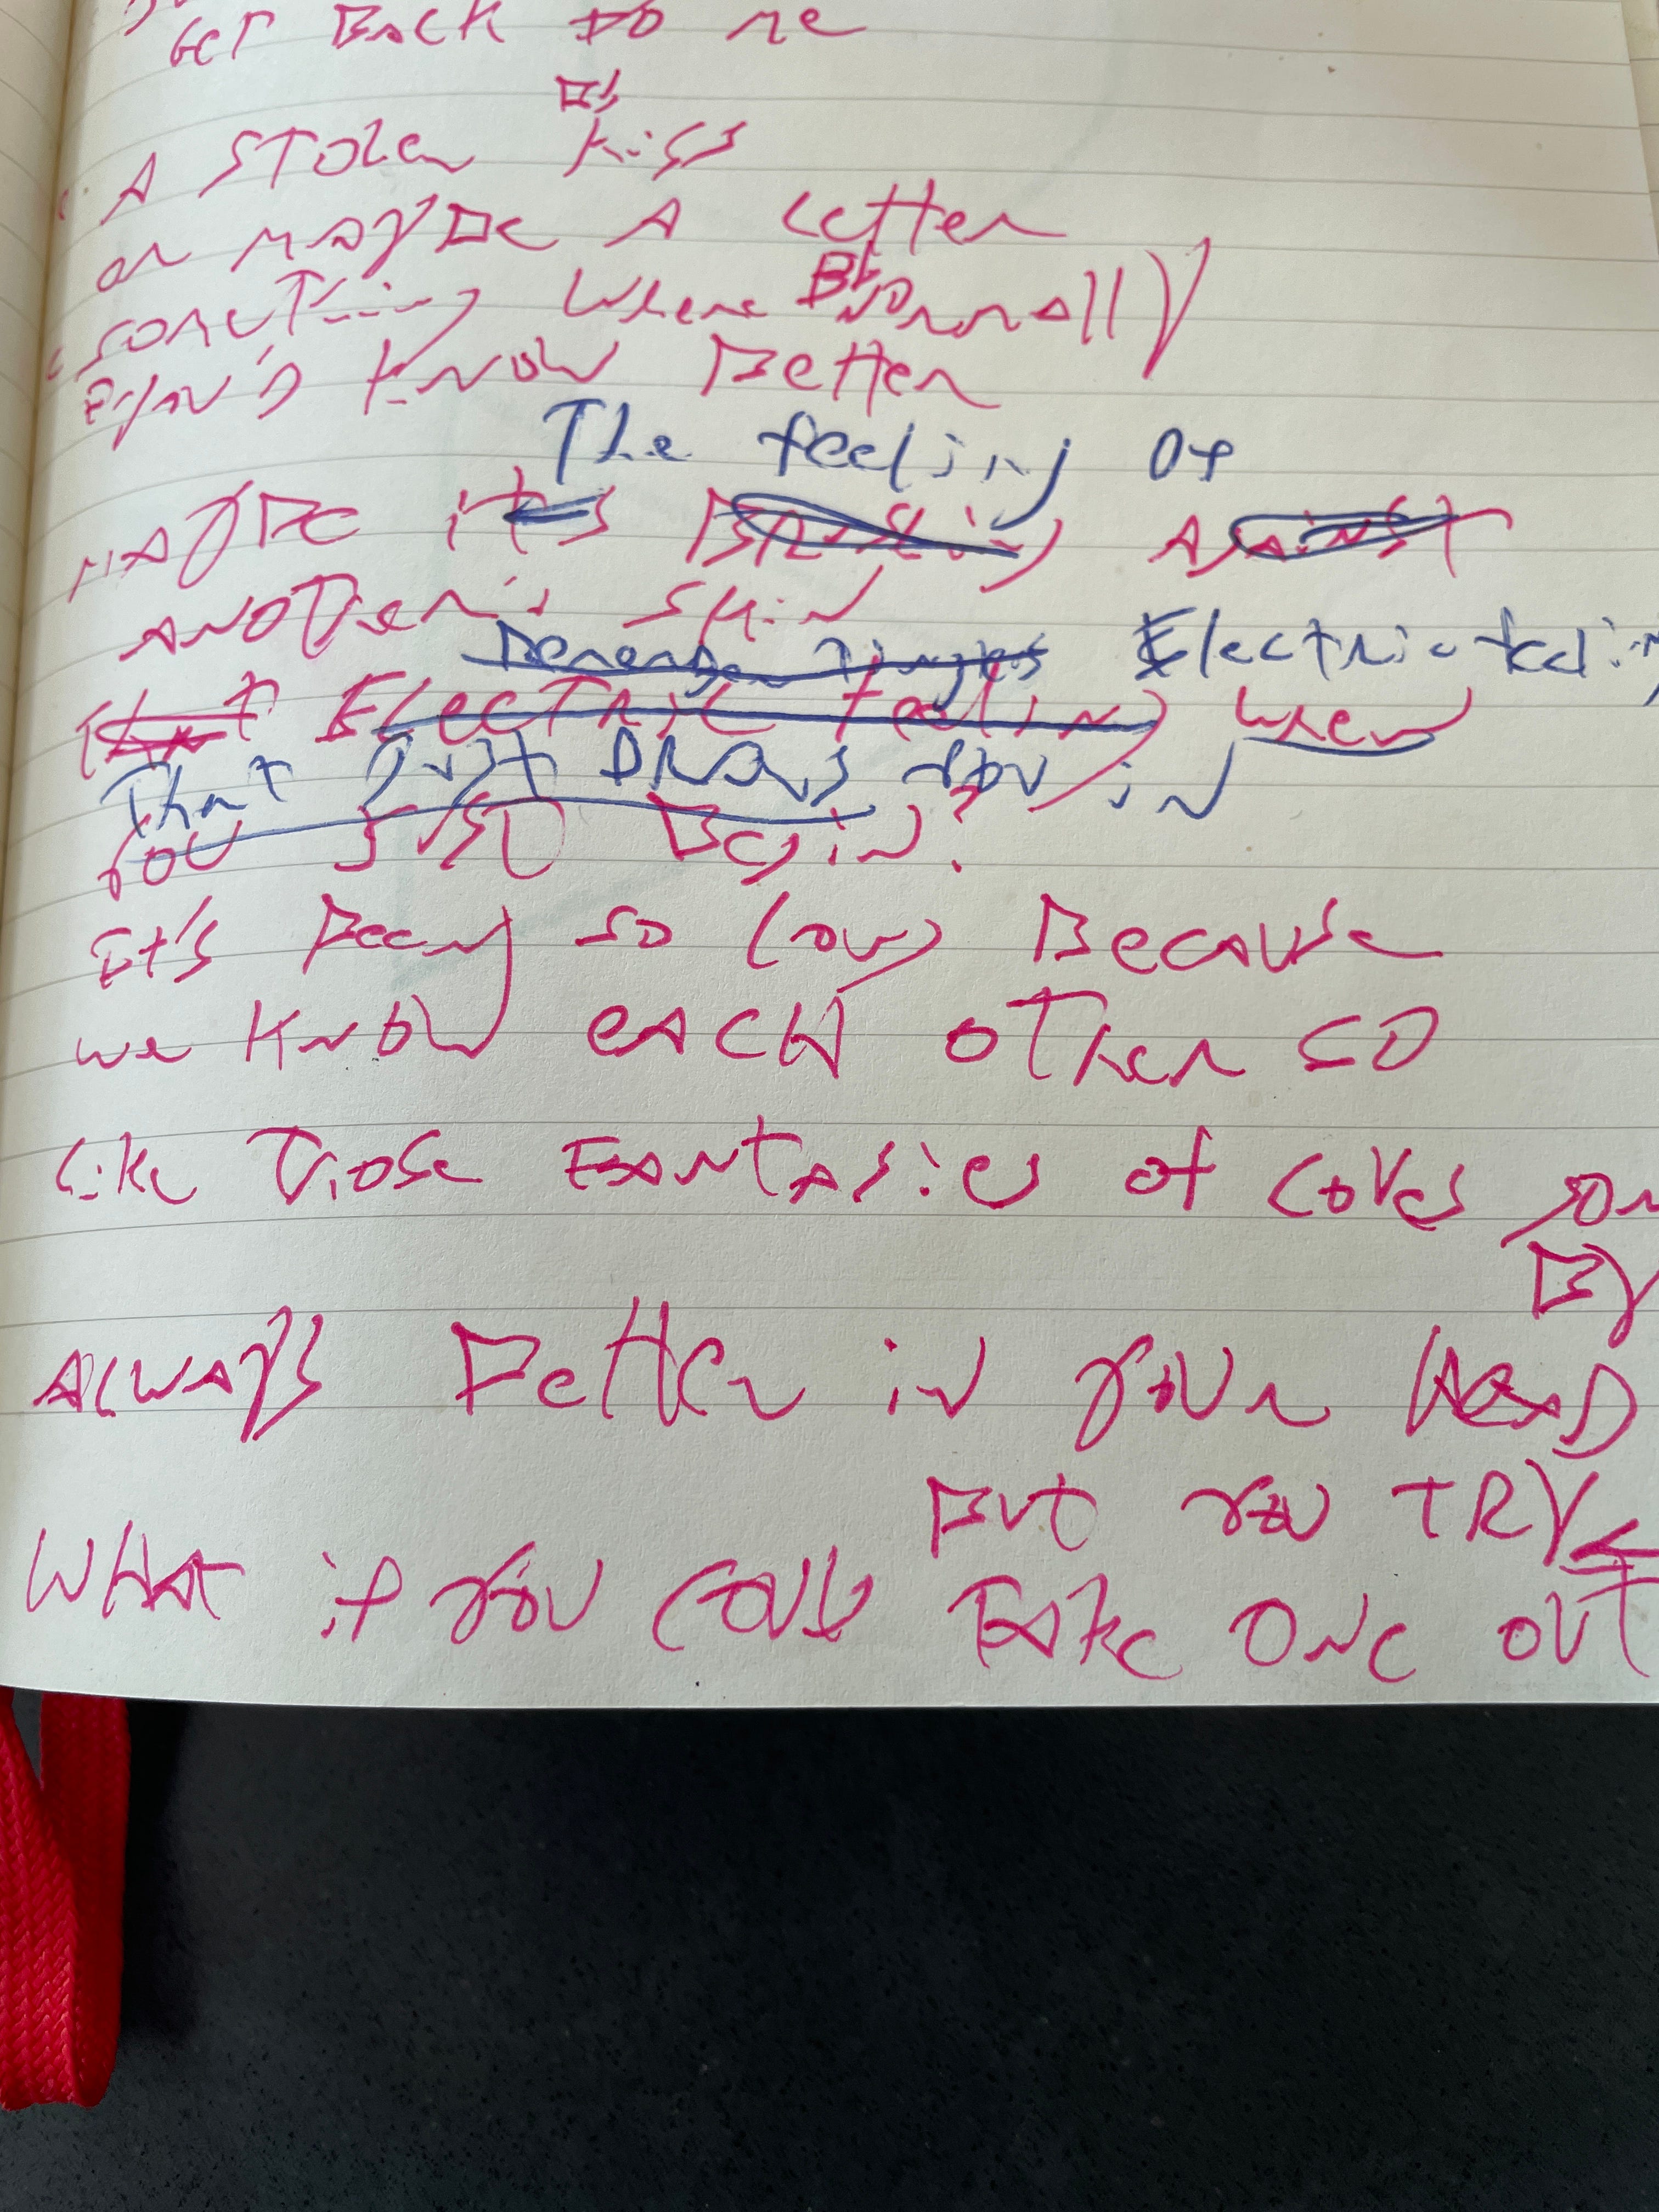 Get Back to me
A Stolen Kiss
or maybe A Letter
something where normally
know Better
The feeling of
maybe it's Brushing Against
Another's skin
Electric feelin
That Electric feeling when
That just Draws you in
you just Begin?
It's Been so long Because
we know each other so
like Those Fantasies of Loves gon
By
Always Better in your head
But you TRY
What if you could Take one out